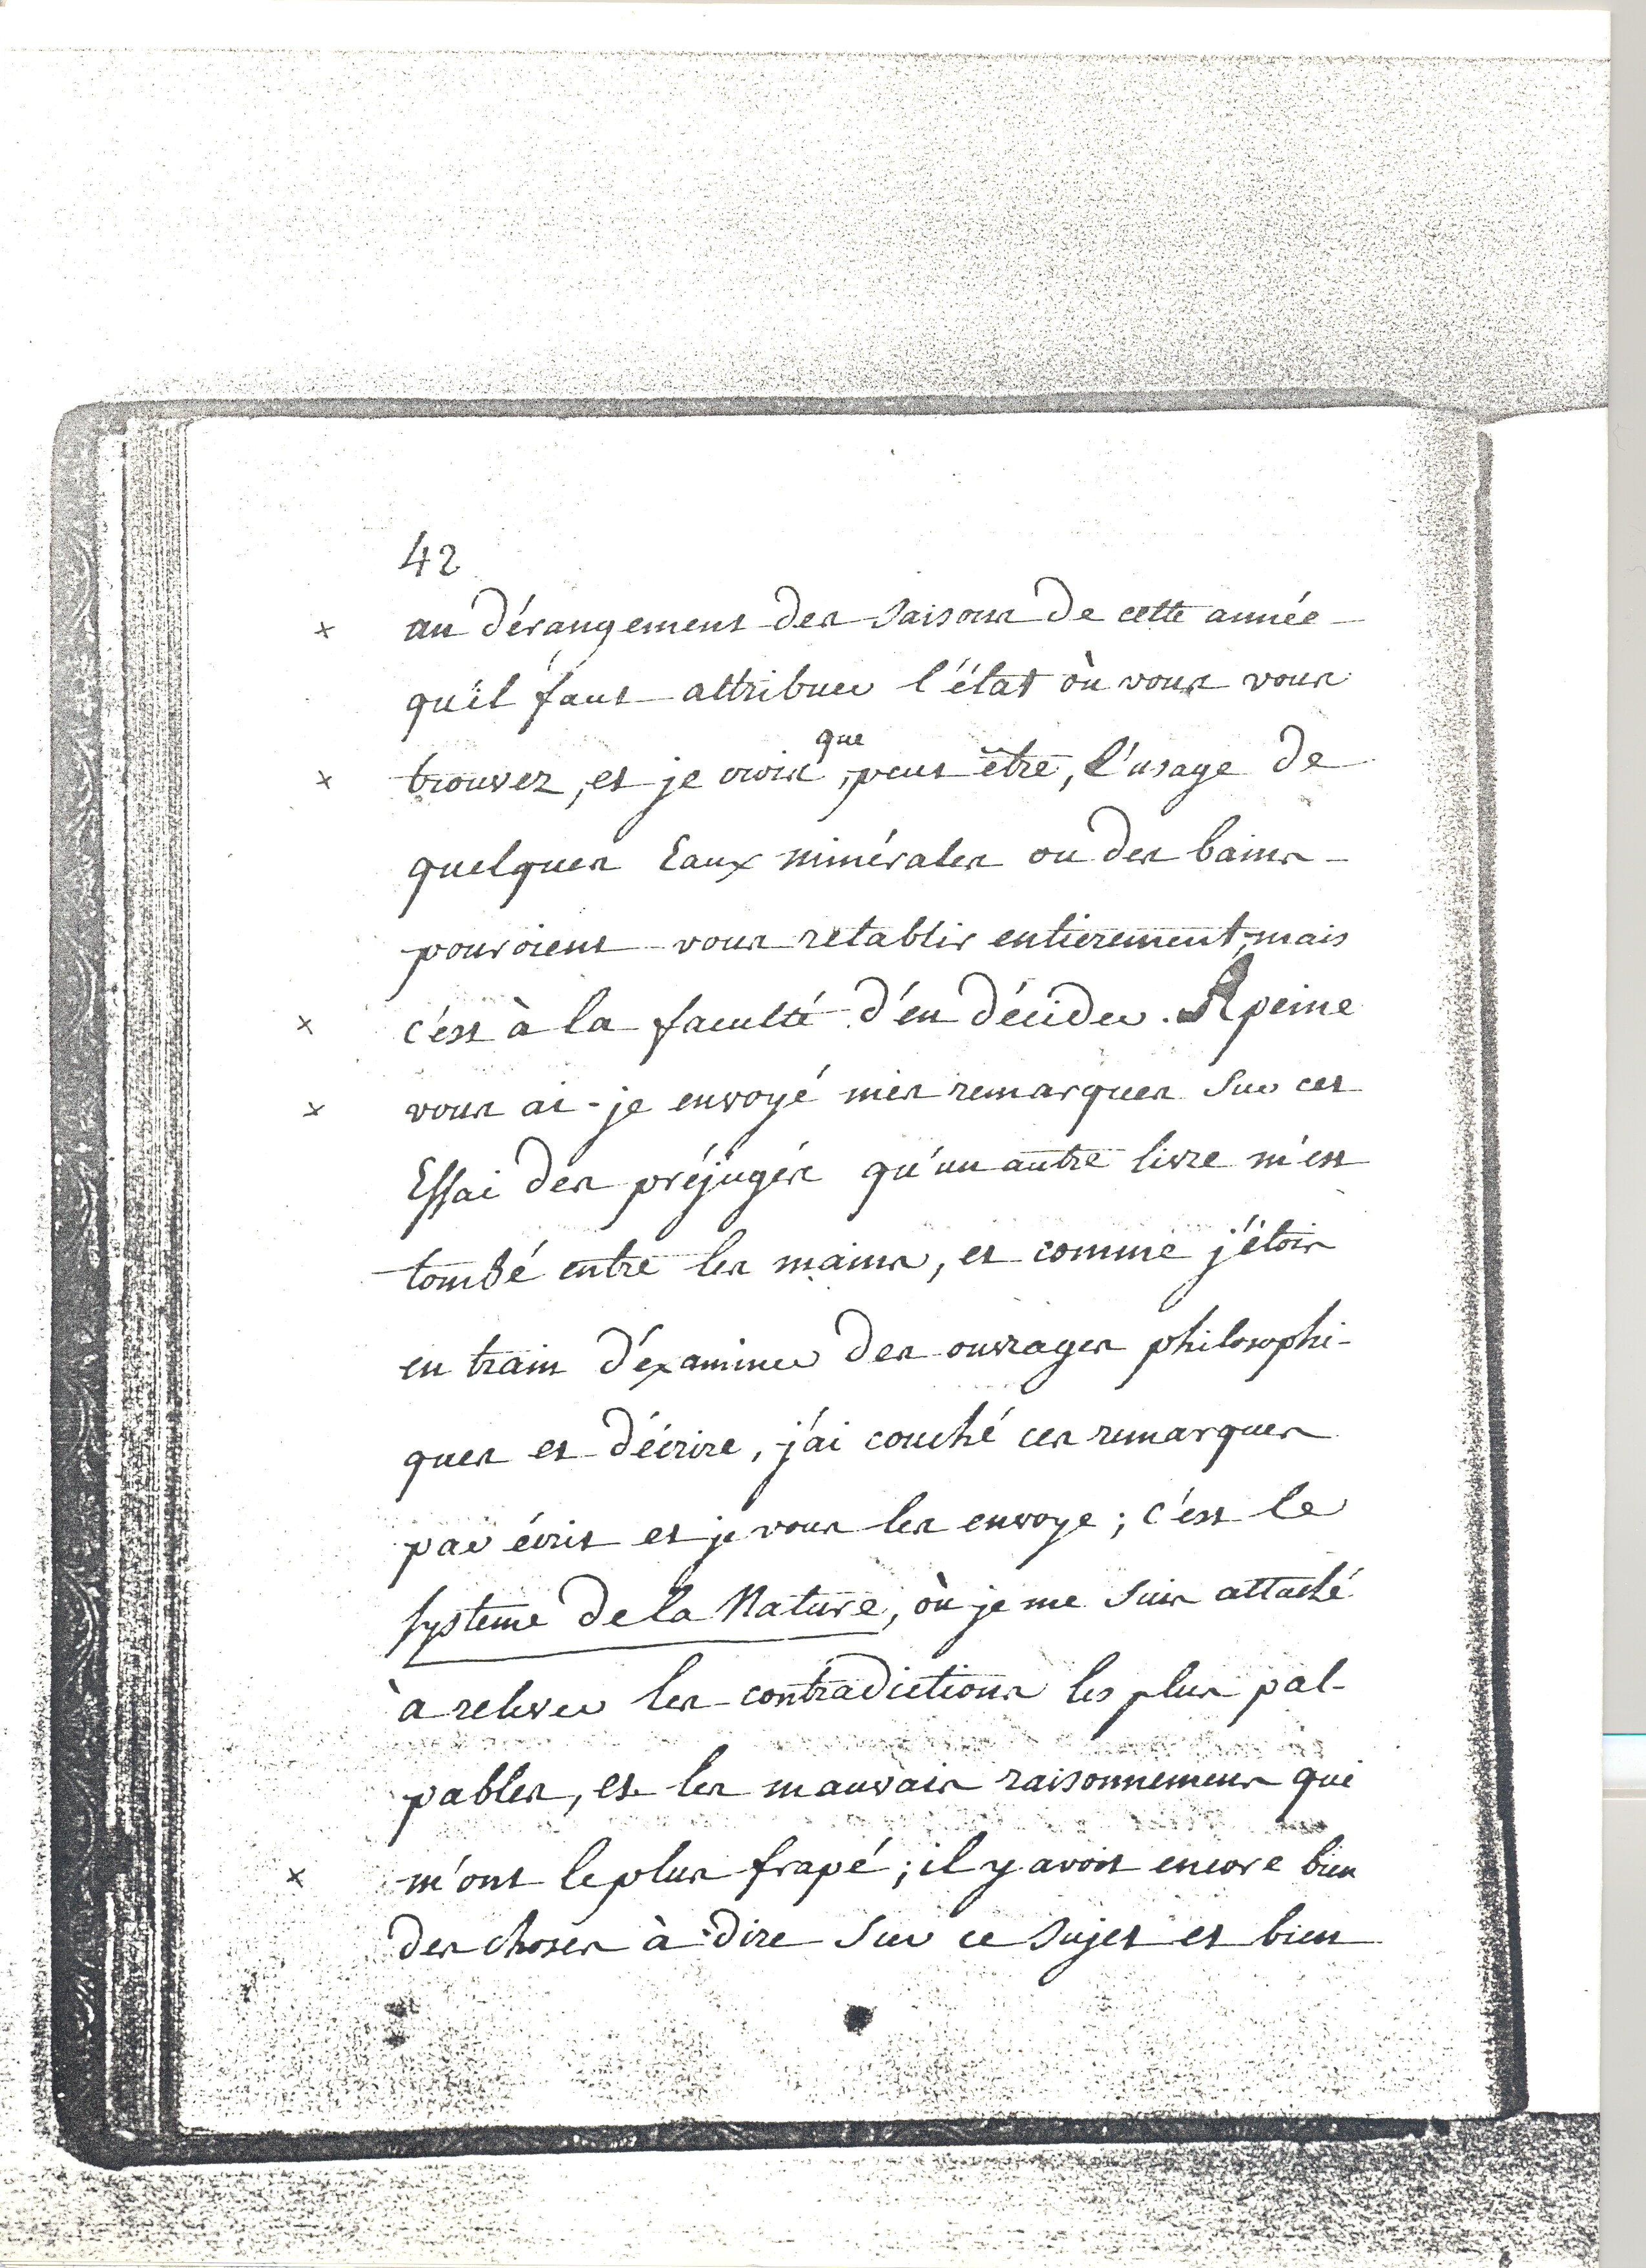 42
× au dérangement des saisons de cette année
qu'il faut attribuer l'état où vous vous
que
× trouvez, et je crois, peut être, l'usage de
quelques Eaux minérales ou des bains
pouroient vous retablir entierement; mais
× c'est à la faculté d'en décider. A peine
× vous ai-je envoyé mes remarques sur cet
Essai des préjugés qu'un autre livre m'est
tombé entre les mains, et comme j'étois
en train d'éxaminer des ouvrages philosophi-
ques et d'écrire, j'ai couché ces remarques
par écrit et je vous les envoye; c'est le
systeme de la Nature, où je me suis attaché
à relever les contradictions les plus pal-
pables, et les mauvais raisonnemens qui
× m'ont le plus frapé; il y avoit encore bien
des choses à dire sur ce sujet et bien